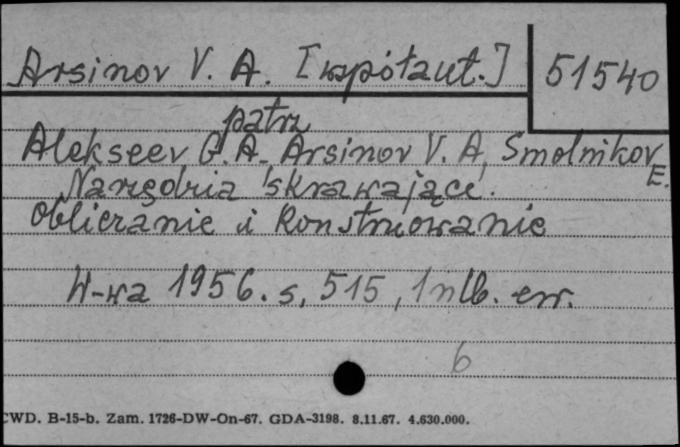 Arsinov V. A. [współaut.] 51540
patrz
Alekseev G. A. Arsinov V. A, Smolnikov E.
Narzędzia skrawające.
Obliczanie i konstruowanie
W-wa 1956. s, 515, 1 nlb. err.
6
CWD. B-15-b. Zam. 1726-DW-On-67. GDA-3198. 8.11.67. 4.630.000.